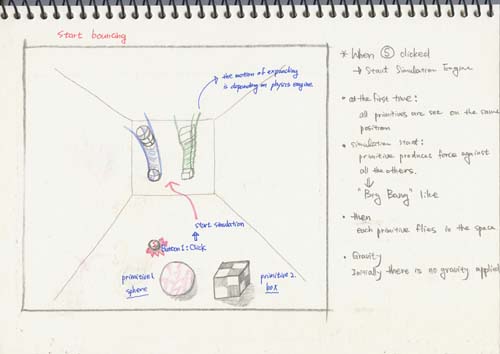 Start bouncing
the motion of expanding
is depending on physics engine
start simulation
Button 1 : Click
primitive 1
sphere
primitive 2
box
* When Ⓢ clicked
→ Start Simulation Engine
• at the first time :
all primitives are set on the same
position
• simulation start :
primitive produces force against
all the others.
"Big Bang" like
• then
each primitive flies in the space
• Gravity
Initially there is no gravity applied